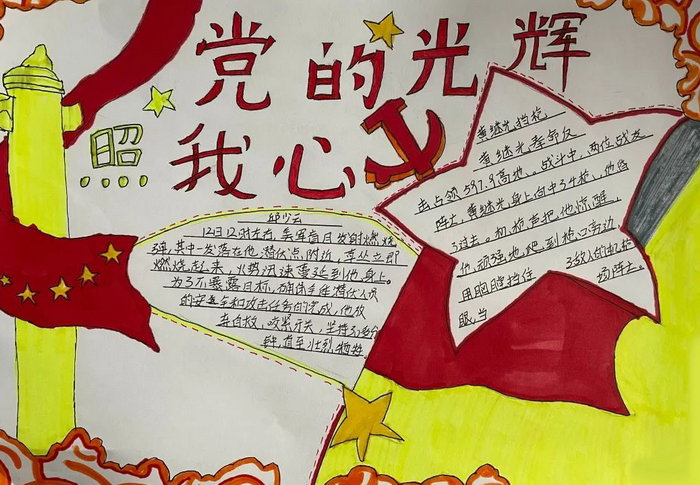 党的光辉
照我心
邱少云
12日12时左右,美军盲目发射燃烧
弹,其中一发落在他潜伏点附近,草丛立即
燃烧起来,火势迅速蔓延到他身上。
为了不暴露目标,确保全体潜伏人员
的安全和攻击任务的完成,他放
弃自救,咬紧牙关,坚持30多分
钟,直至壮烈牺牲
黄继光挡枪
黄继光奉命反
击占领597.9高地。战斗中,两位战友
阵亡,黄继光身上向中3枪,他昏
了过去。机枪声把他惊醒,
他顽强地爬到枪口旁边,
用胸膛挡住了敌人的机枪
眼,当场阵亡。